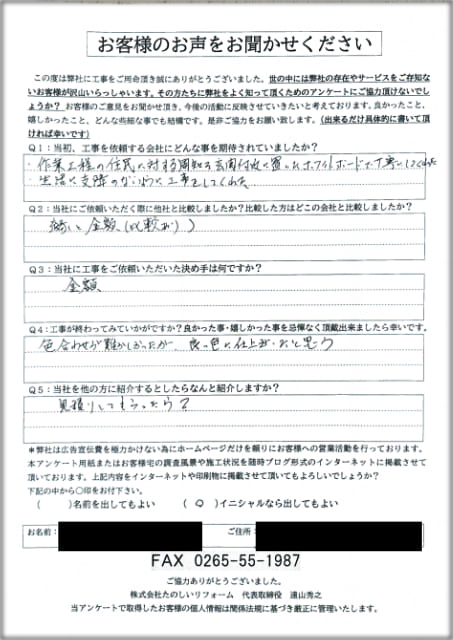 お客様のお声をお聞かせください
この度は弊社に工事をご用命頂き誠にありがとうございました。世の中には弊社の存在やサービスをご存知ない
お客様が沢山いらっしゃいます。その方たちに弊社をよく知って頂くためのアンケートにご協力頂けないでし
ょうか？ お客様のご意見をお聞かせ頂き、今後の活動に反映させていきたいと考えております。良かったこと、
嬉しかったこと、どんな些細な事でも結構です。是非ご協力をお願い致します。(出来るだけ具体的に書いて頂
ければ幸いです)
Q1：当初、工事を依頼する会社にどんな事を期待されていましたか？
・作業工程の住民に対する周知を玄関付近に置いたホワイトボードで丁寧にしてくれた
・生活に支障のないように工事をしてくれた
Q2：当社にご依頼いただく際に他社と比較しましたか？比較した方はどこの会社と比較しましたか？
金額
Q3：当社に工事をご依頼いただいた決め手は何ですか？
金額
Q4：工事が終わってみていかがですか？良かった事・嬉しかった事を忌憚なく頂戴出来ましたら幸いです。
色合わせが難かしかったが、良い色に仕上がったと思う
Q5：当社を他の方に紹介するとしたらなんと紹介しますか？
見積りしてもらったら？
＊弊社は広告宣伝費を極力かけない為にホームページだけを頼りにお客様への営業活動を行っております。
本アンケート用紙またはお客様宅の調査風景や施工状況を随時ブログ形式のインターネットに掲載させて
頂いております。上記内容をインターネットや印刷物に掲載させて頂いてもよろしいでしょうか？
下記の中から○印をお付下さい。
(　　)名前を出してもよい　　(　○　)イニシャルなら出してもよい
お名前：　　ご住所：
FAX 0265-55-1987
ご協力ありがとうございました。
株式会社たのしいリフォーム　代表取締役　遠山秀之
当アンケートで取得したお客様の個人情報は関係法規に基づき厳正に管理いたします。